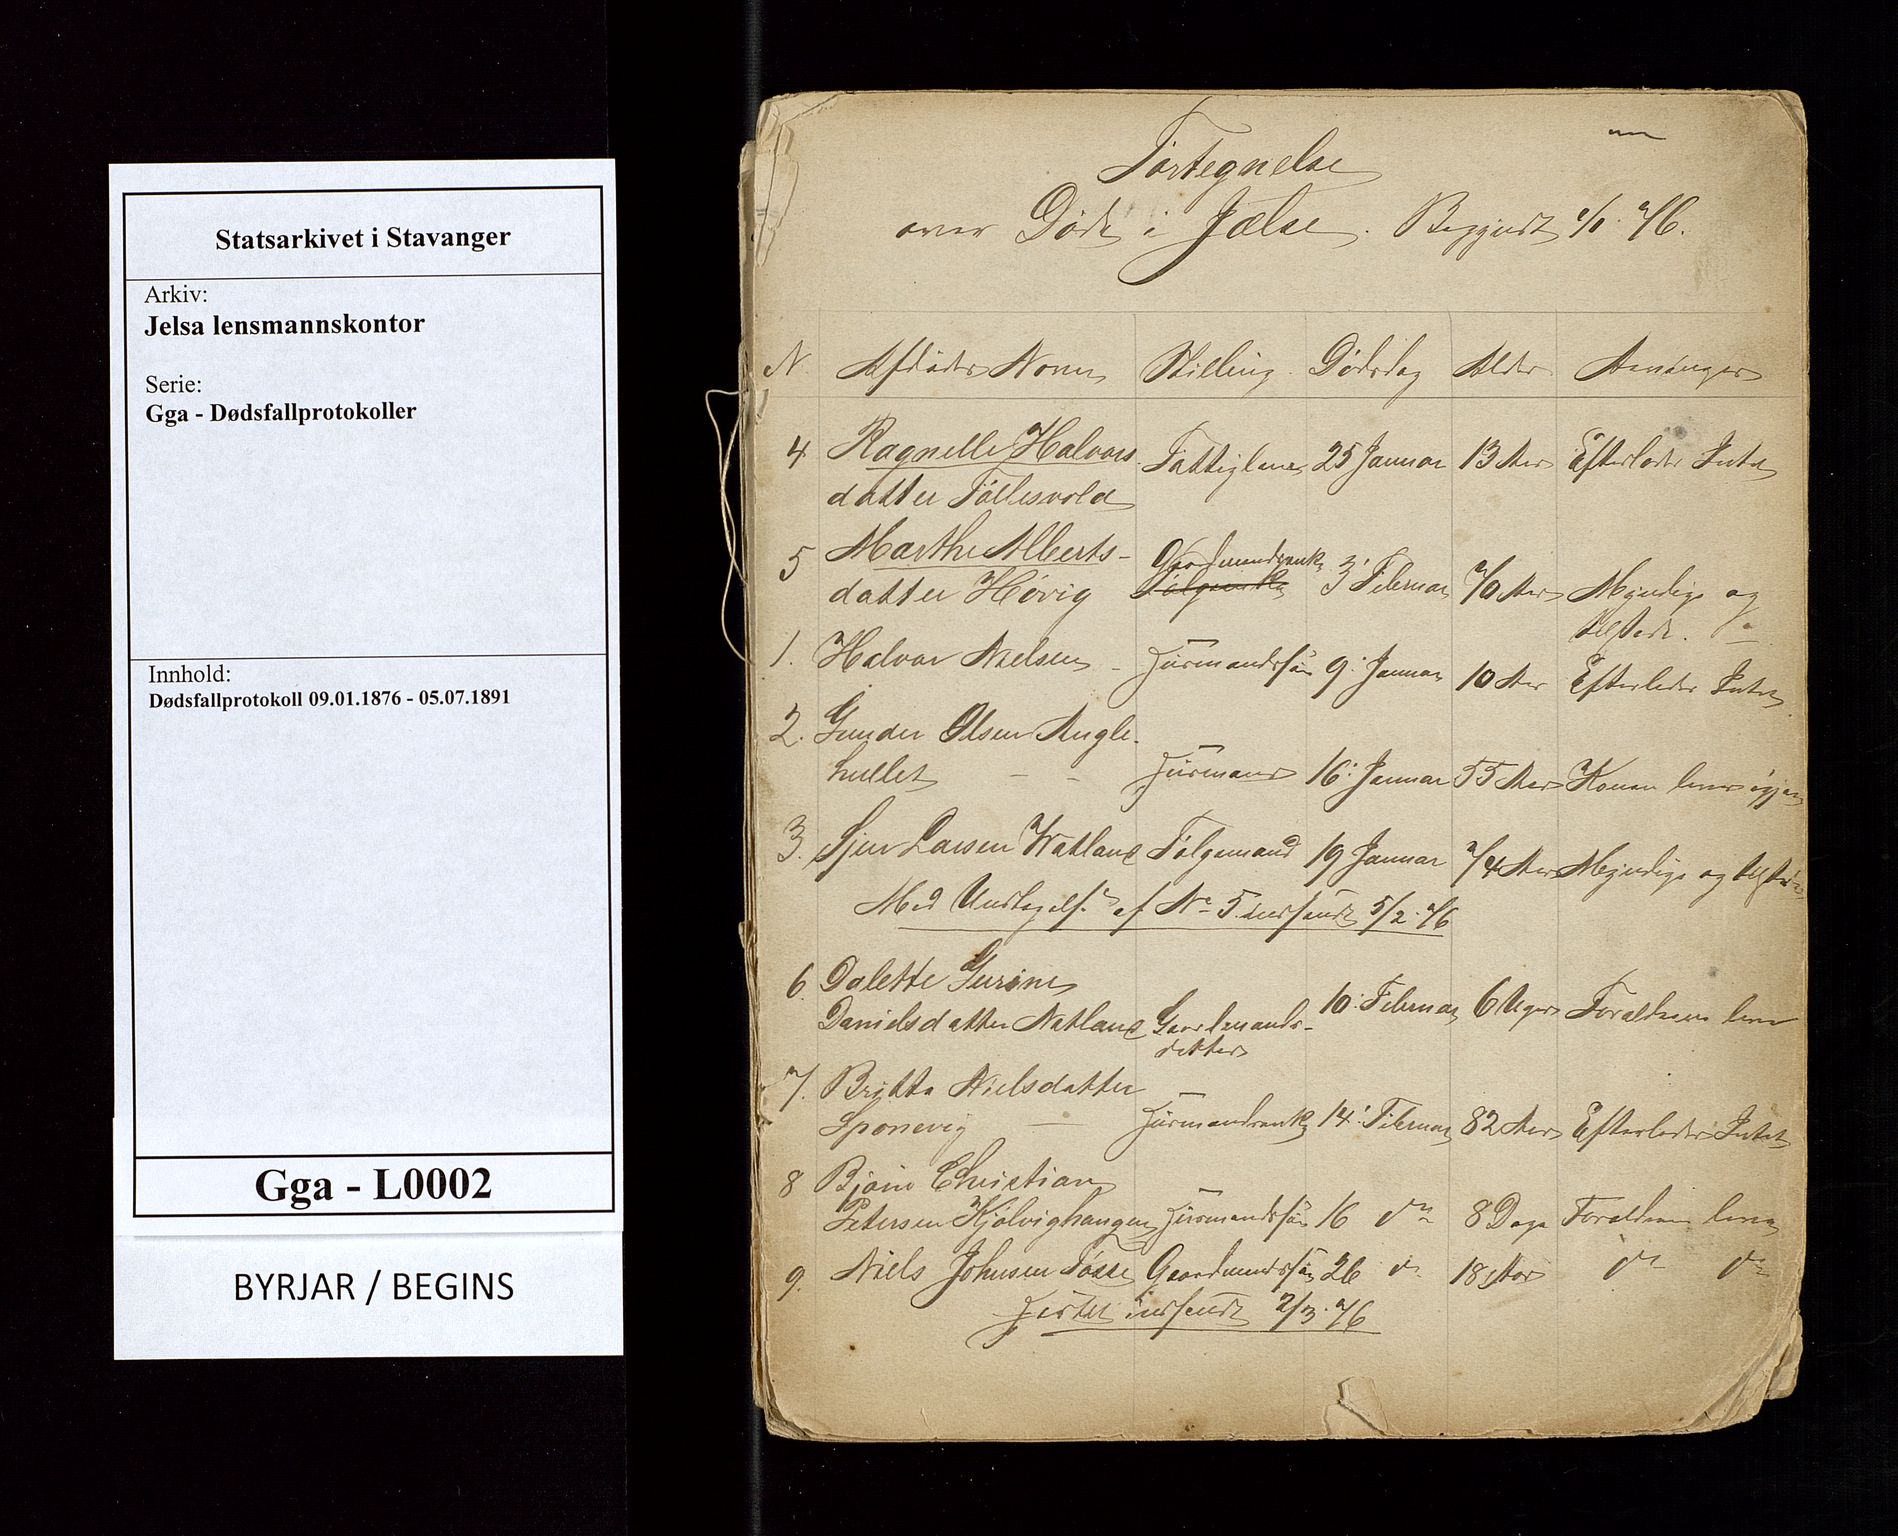 Statsarkivet i Stavanger
Arkiv:
Jelsa lensmannskontor
Serie:
Gga - Dødsfallprotokoller
Innhold:
Dødsfallprotokoll 09.01.1876 - 05.07.1891
Gga - L0002
BYRJAR / BEGINS
Fortegnelse
over Døde i Jælse. Begyndt 1/1 76.
N. Afdødes Navn Stilling Dødsdag Alder
4 Ragnelle Halvors Fattiglem 25 Januar 13 Aar Efterlader Intet
datter Tøttesvold
5 Marthe Alberts- Gaardmandsenke 3' Februar 70 Aar Myndige og
datter Høvig tilstede.
1. Halvor Nielsen - Husmandssøn 9' Januar 10 Aar Efterlader Intet
2. Gunder Olsen Angle-
hullet - - Husmand 16' Januar 55 Aar Konen lever igjen
3. Larsen Watland Følgemand 19 Januar 74 Aar Myndige og tilstede
Med Undtagelse af No 5 indsendt 5/2 76
6. Dalette Gurine 10' Februar 6 Uger Forældrene leve
Danielsdatter Natland Gaardmands-
datter
7. Britta Nielsdatter
Sponevig - Husmandsenke 14' Februar 82 Aar Efterlader Intet
8 Bjørn Christian
Petersen Kjølvighaugen Husmandssøn 16 do 8 Dage Forældrene leve
9. Niels Johnsen Fosse Gaardmandssøn 26 do 18 Aar do do
Listen indsendt 2/3 76